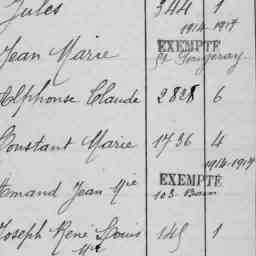 Jules 344 1
1914 1917
Jean Marie EXEMPTÉ
St
Alphonse Claude 2828 6
Constant Marie 1736 4
1914-1917
Armand Jean Mie EXEMPTÉ
103
Joseph René Louis 145 1
Mie